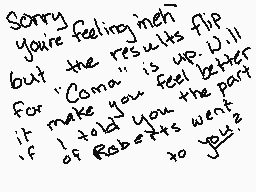 Sorry
you're feeling meh
but the results flip
for "Coma" is up. Will
it make you feel better
if I told you the part
of Roberts went
to you?